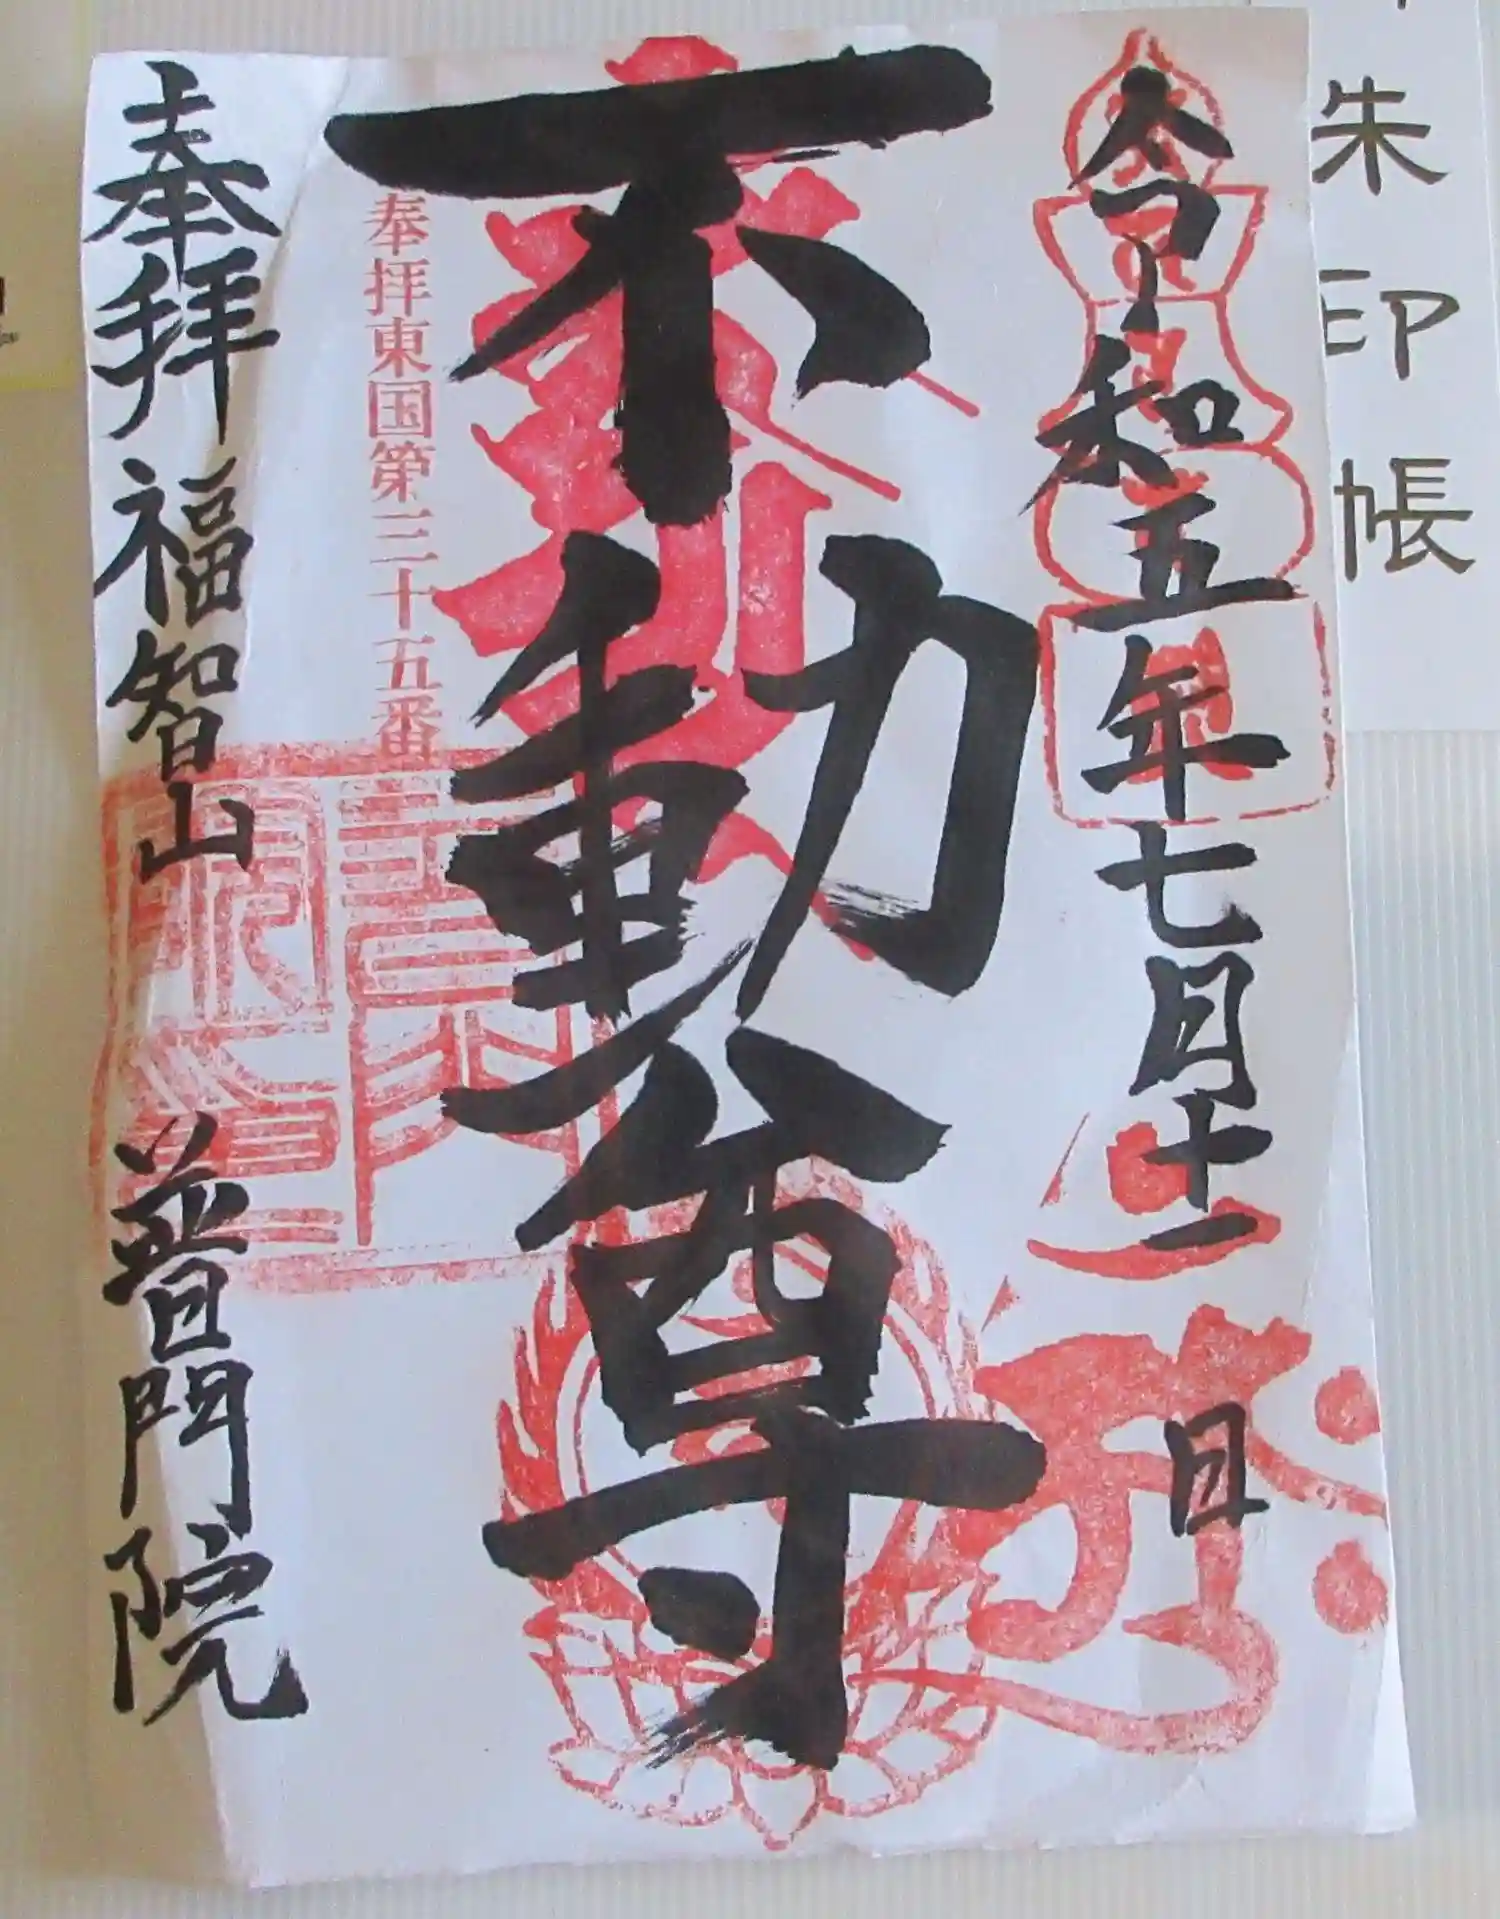 朱印帳
令和五年七月十一日
不動尊
奉拝東国第三十五番
奉拝 福智山 普門院